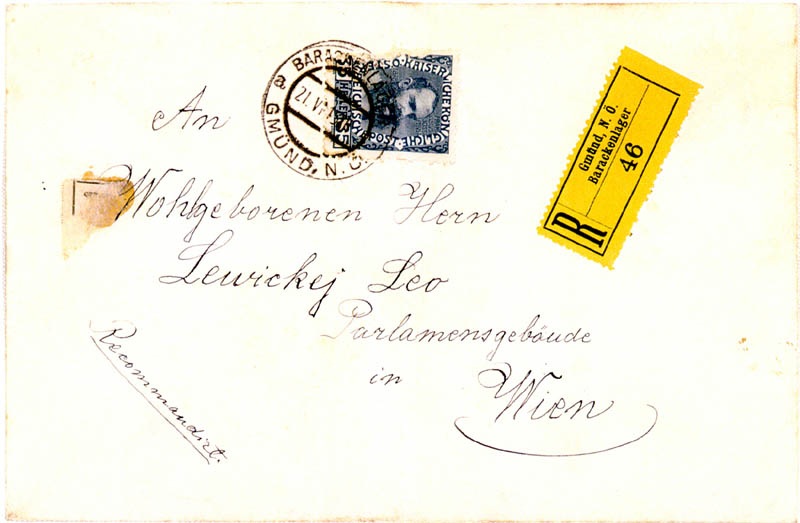 BARACKENLAGER
21.VI
a GMÜND, N.Ö.
35 HELLER 35
KAISERL. KÖNIGL. ÖSTERREICHISCHE POST
Gmünd, N. Ö.
Barackenlager
46
R
An
Wohlgeborenen Hern
Lewickej Leo
Parlamensgebäude
in
Wien
Recommandirt.